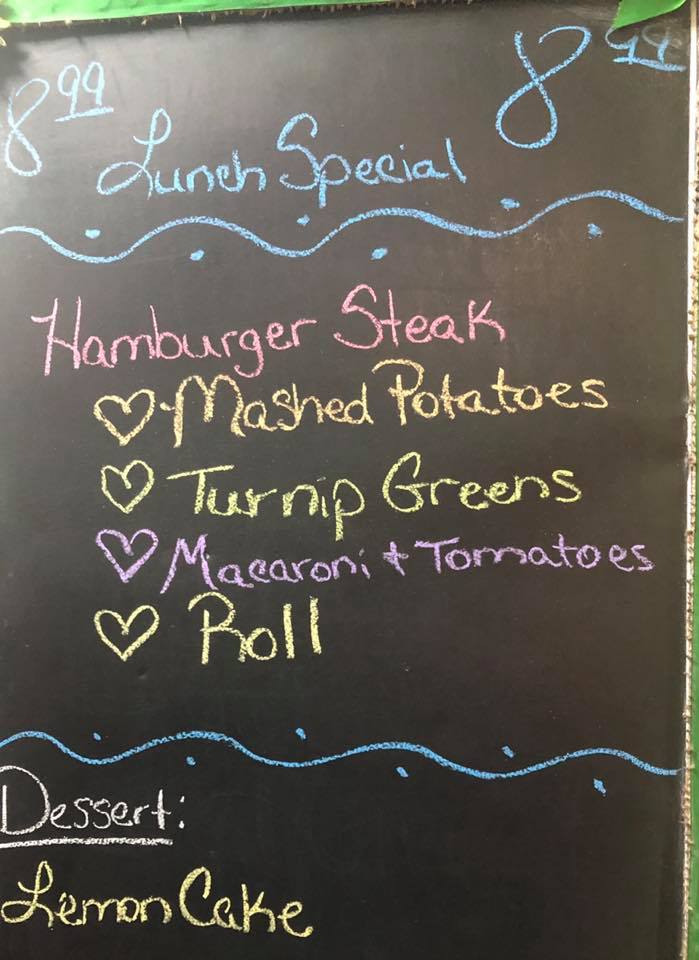 8 99 8 99
Lunch Special
Hamburger Steak
Mashed Potatoes
Turnip Greens
Macaroni + Tomatoes
Roll
Dessert:
Lemon Cake